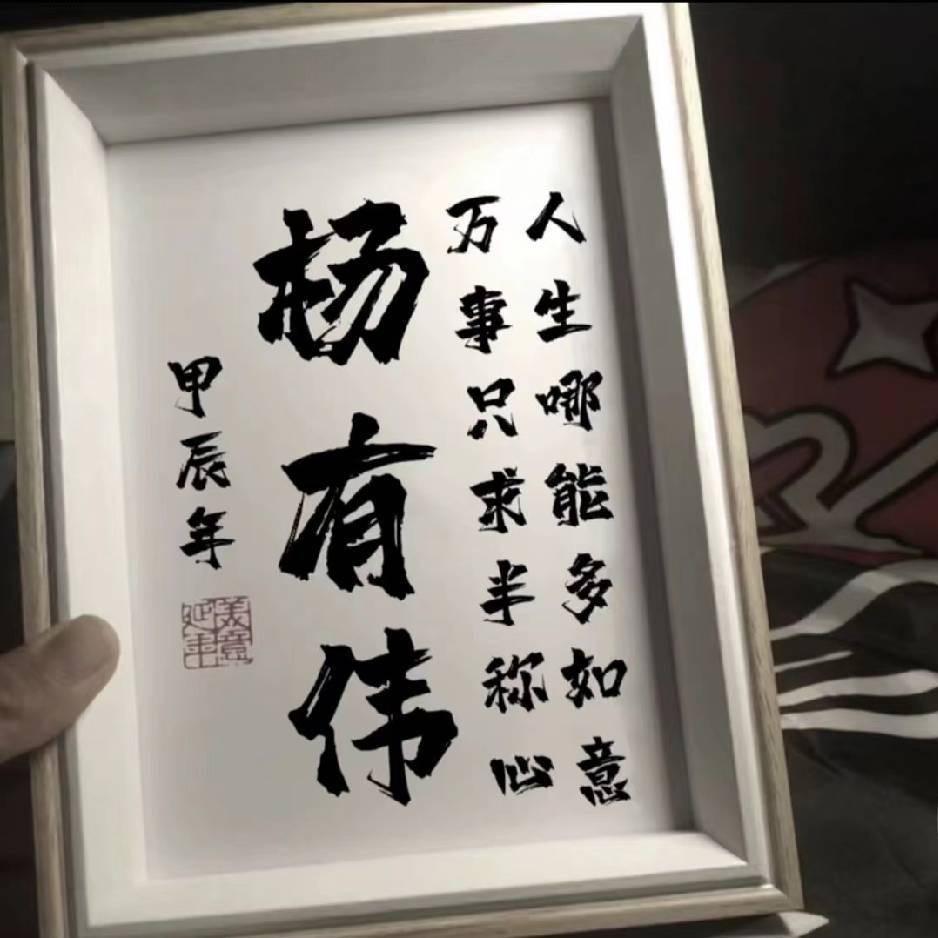 人生哪能多如意
万事只求半称心
杨有伟
甲辰年
美意延年